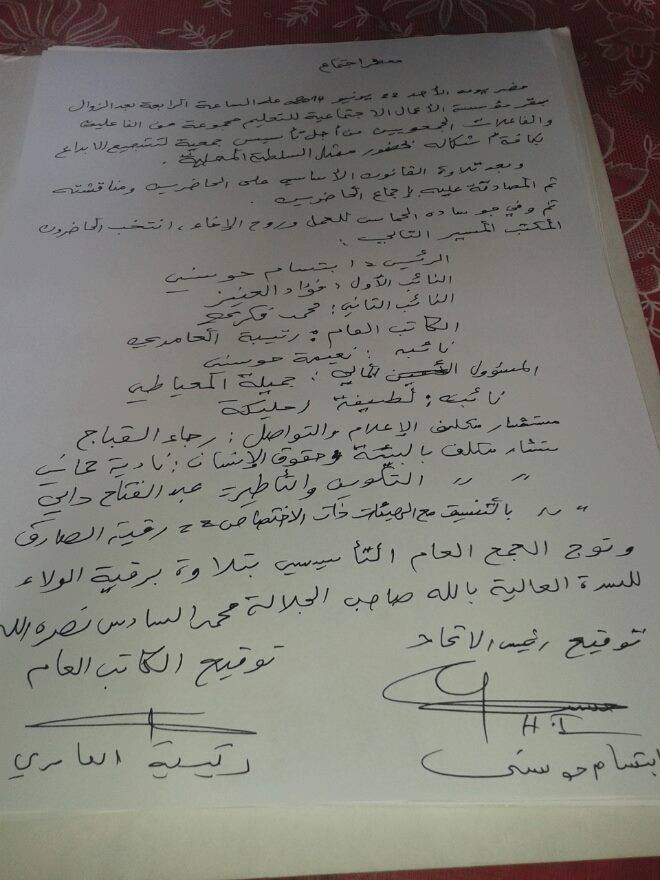 محضر اجتماع
محضر يومه الأحد 22 يونيو 2014 على الساعة الرابعة بعد الزوال
بمقر مؤسسة الأعمال الاجتماعية للتعليم مجموعة من الفاعلين
والفاعلات الجمعويين من أجل تأسيس جمعية لتشجيع الابداع
بكافة أشكاله بحضور ممثل السلطة المحلية.
وبعد تلاوة القانون الأساسي على الحاضرين ومناقشته
تم المصادقة عليه بإجماع الحاضرين.
ثم وفي جو ساده الحماس للعمل وروح الإخاء، انتخب الحاضرون
المكتب المسير التالي:
الرئيس: ابتسام حوسني
النائب الأول: فؤاد العنيز
النائب الثاني: محمد
الكاتب العام: رتيبة الحامدي
نائبه: نعيمة حوسني
المسؤول المالي: جميلة المعياطي
نائبه: لطيفة
مستشار مكلف الإعلام والتواصل: رجاء القباج
مستشار مكلف بالبيئة وحقوق الإنسان: نادية
" " التكوين والتأطير عبد الفتاح دابي
" " بالتنسيق مع الهيئات ذات الاختصاص == رقية الصارق
وتوج الجمع العام التأسيسي بتلاوة برقية الولاء
للسدة العالية بالله صاحب الجلالة محمد السادس نصره الله
توقيع رئيس الاتحاد
توقيع الكاتب العام
H.I
ابتسام حوسني
رتيبة العامري